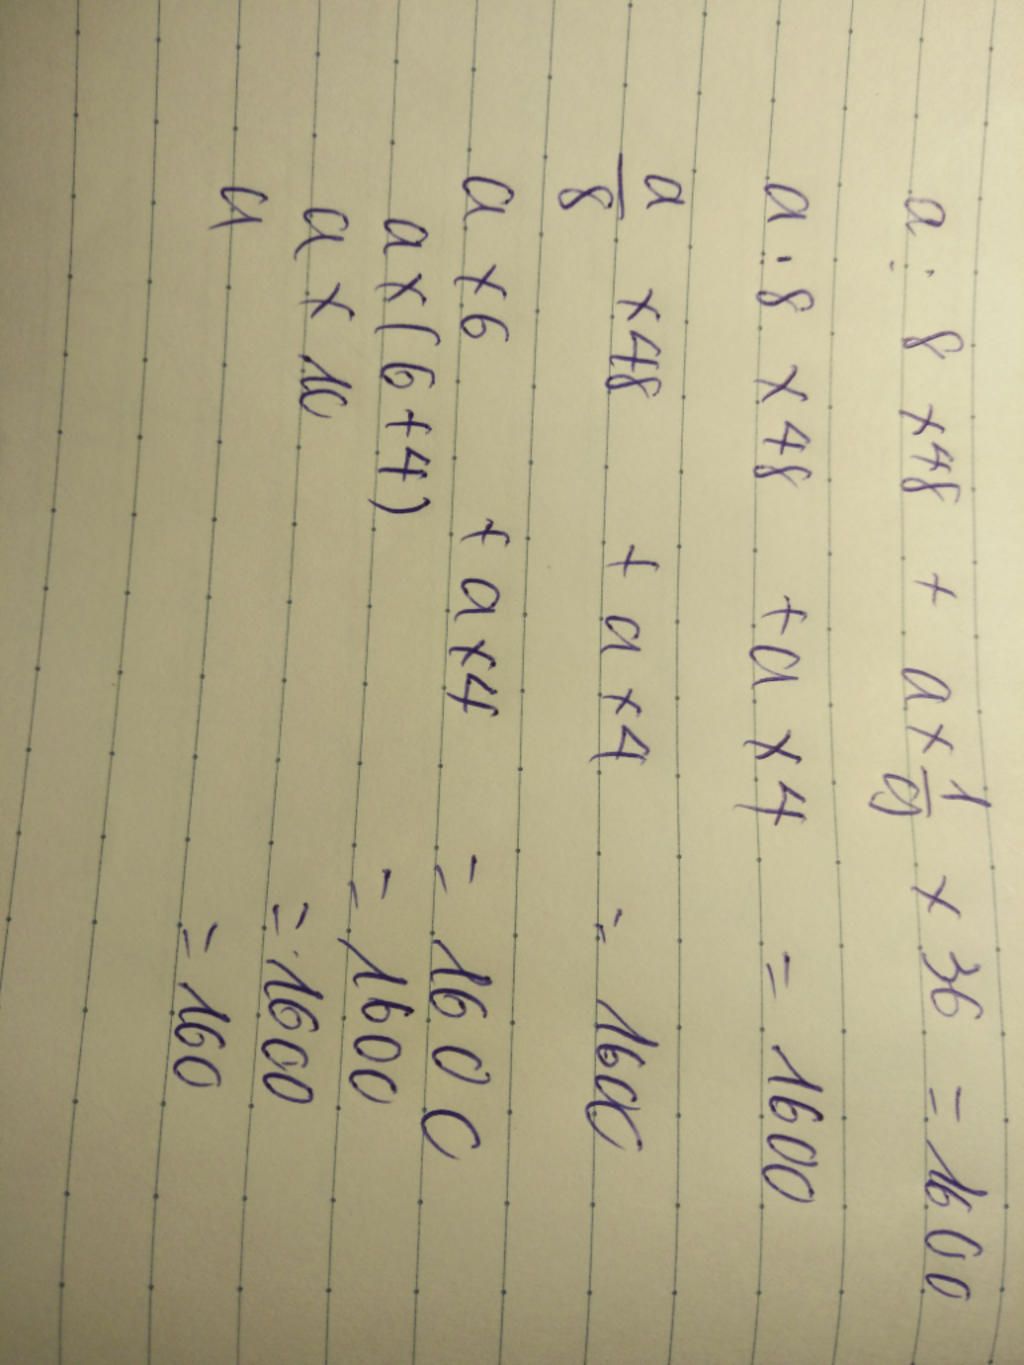 a : 8 x48 + a x 1/9 x 36 = 1600
a : 8 x 48 + a x 4 = 1600
a/8 x48 + a x 4 = 1600
a x 6 + a x4 = 1600
a x (6+4) = 1600
a x 10 = 1600
a = 160